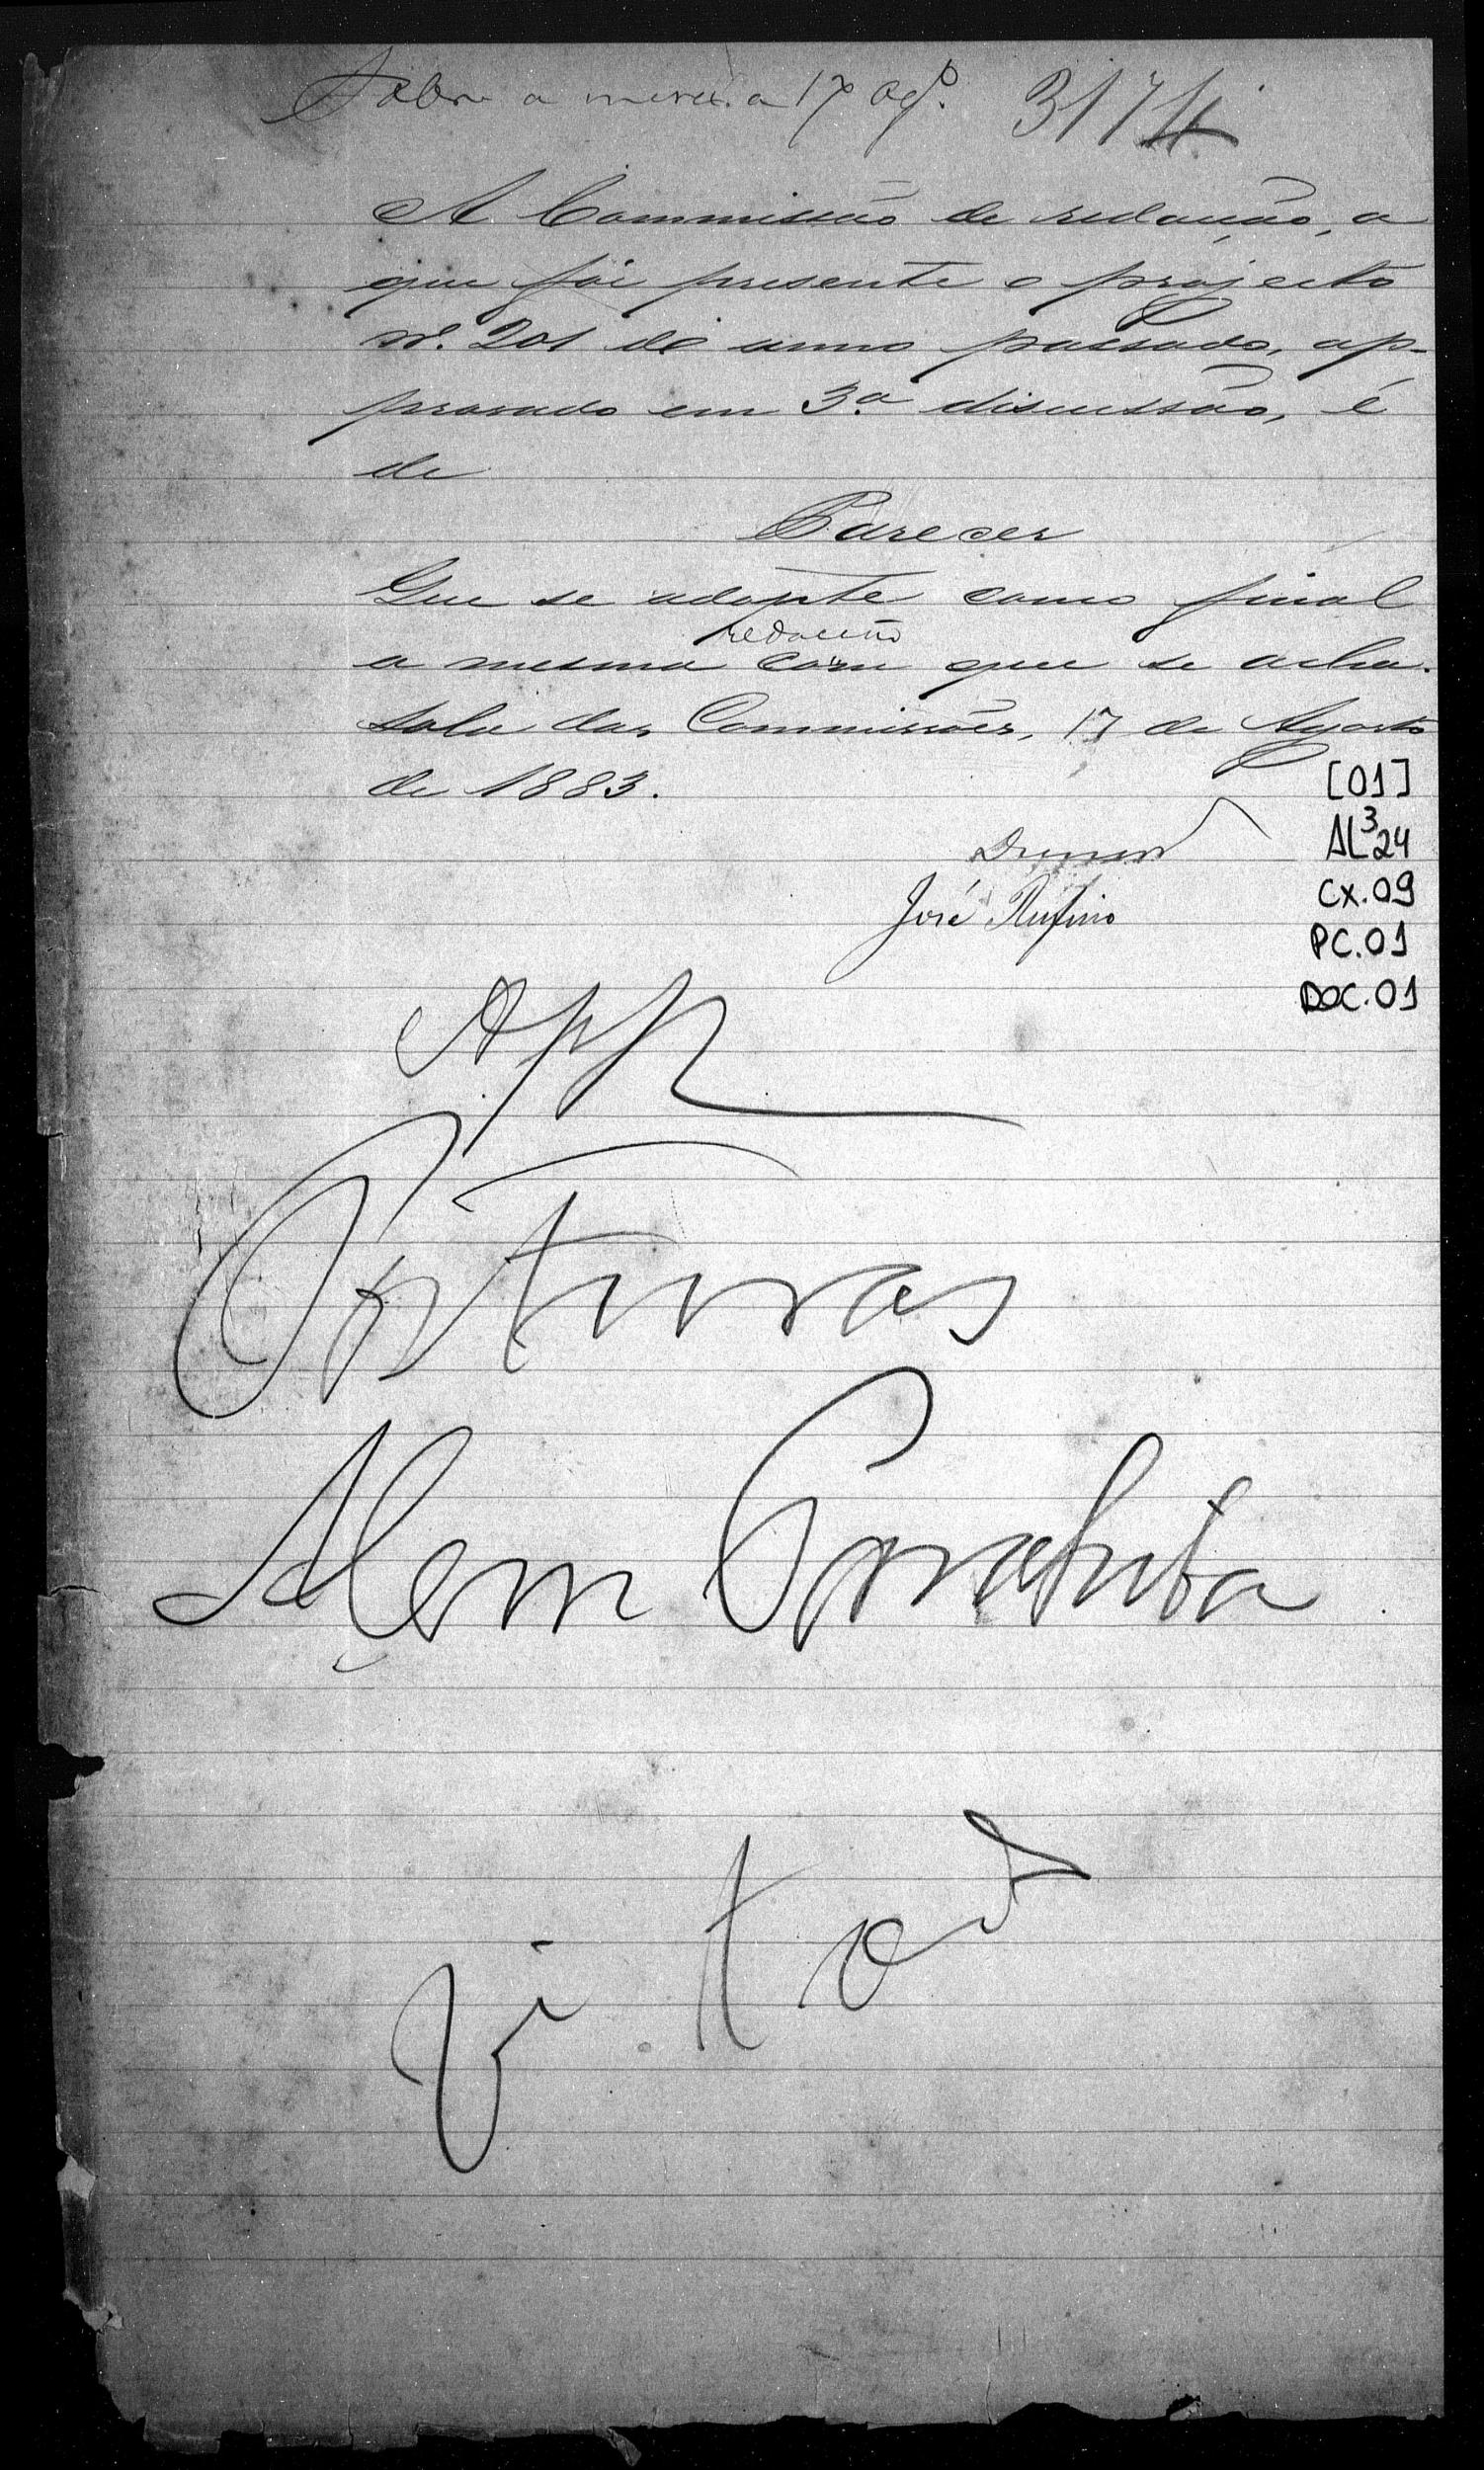 Sobre a mesa a 17 Ag.º 3174
A Commissão de redacção, a
que foi presente o projecto
nº. 201 do anno passado, ap-
provado em 3.ª discussão, é
de
Parecer
Que se adopte como final
redacção
a mesma com que se acha.
Sala das Commissões, 17 de Agosto
de 1883.
José Rufino
[01]
AL³24
CX.09
PC.01
DOC.01
App
Posturas
Alem Parahiba